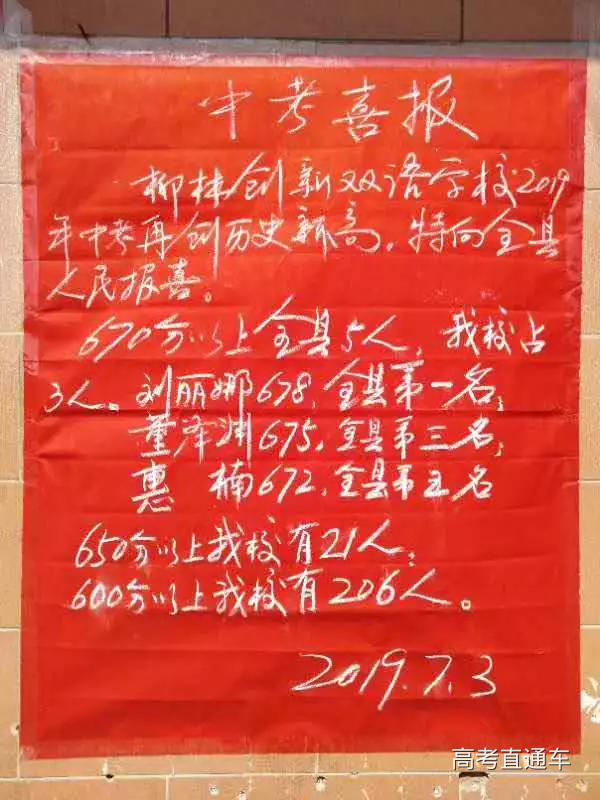 中考喜报
柳林创新双语学校2019
年中考再创历史新高，特向全县
人民报喜。
670分以上全县5人，我校占
3人。刘丽娜678，全县第一名；
董泽渊675，全县第三名；
惠　楠672，全县第五名
650分以上我校有21人；
600分以上我校有206人。
2019.7.3
高考直通车